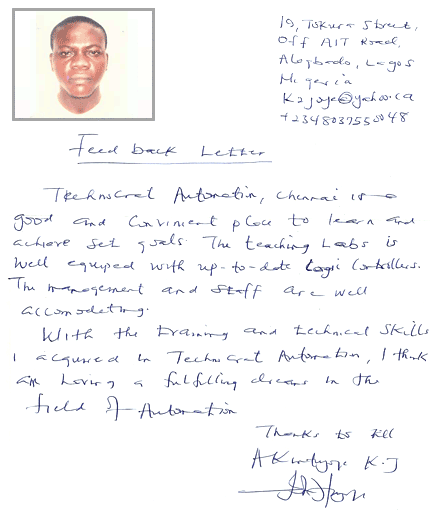 19, Tokura Street,
Off AIT Road,
Alagbado, Lagos
Nigeria
+2348037550048
Feed back Letter
Technocrat Automation, Chennai is a
good and convinient place to learn and
achieve set goals. The teaching Labs is
well equiped with up-to-date Logic Controllers.
The management and staff are well
accomodating.
With the training and technical skills
I acquired in Technocrat Automation, I think
am having a fulfilling dreams in the
field of Automation
Thanks to all
K.J